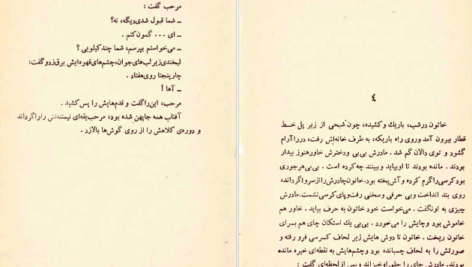 مرحب گفت :
ـ شما قبول شدی‌دیگه، نه؟
ـ ای ... گمون‌کنم .
ـ می‌خواستم بپرسم، شما چندکیلویی ؟
لبخندی‌زیر لب‌های‌جوان، چشم‌های‌قهوه‌ایش برق‌زدوگفت:
چارپنجتا روی‌هفتاد .
ـ آها !
مرحب، این‌راگفت و قدم‌هایش را پس‌کشید .
آفتاب همه جاپهن شده بود، مرحب‌یقه‌ای نیمتنه‌اش راواگرداند
و دوره‌ی کلاهش را از روی گوش‌ها بالازد.
٤
خاتون درشب، باریك وکشیده، چون‌شبحی از زیر پل خط
قطار بیرون آمد وروی راه باریکه، به طرف خانه‌اش رفت، دررا آرام
گشود و توی دالان گم شد. مادرش بی‌بی ودخترش خاورهنوز بیدار
بودند . مانده بودند تا اوبیاید وببینند چه‌کرده است . بی‌بی‌هرجوری
بودکرسی‌راگرم کرده و آتش‌پخته بود.خاتون‌چادرش‌را ازسرواگرداند،
روی بند انداخت وبی حرفی وسخنی رفت‌وپای‌کرسی‌نشست.مادرش
چیزی به اونگفت . می‌خواست خود خاتون به حرف بیاید. خاور هم
خاموش بود وچایش را می‌خورد. بی‌بی یك استکان چای هم برای
خاتون ریخت . خاتون تا دوش هایش زیر لحاف کرسی فرو رفته و
صورتش را به لحاف چسبانده بود وچشمهایش به نقطه‌ای خیره مانده
بودند. مادرش چای را جلو اوخیزاند و پس از لحظه‌ای گفت :